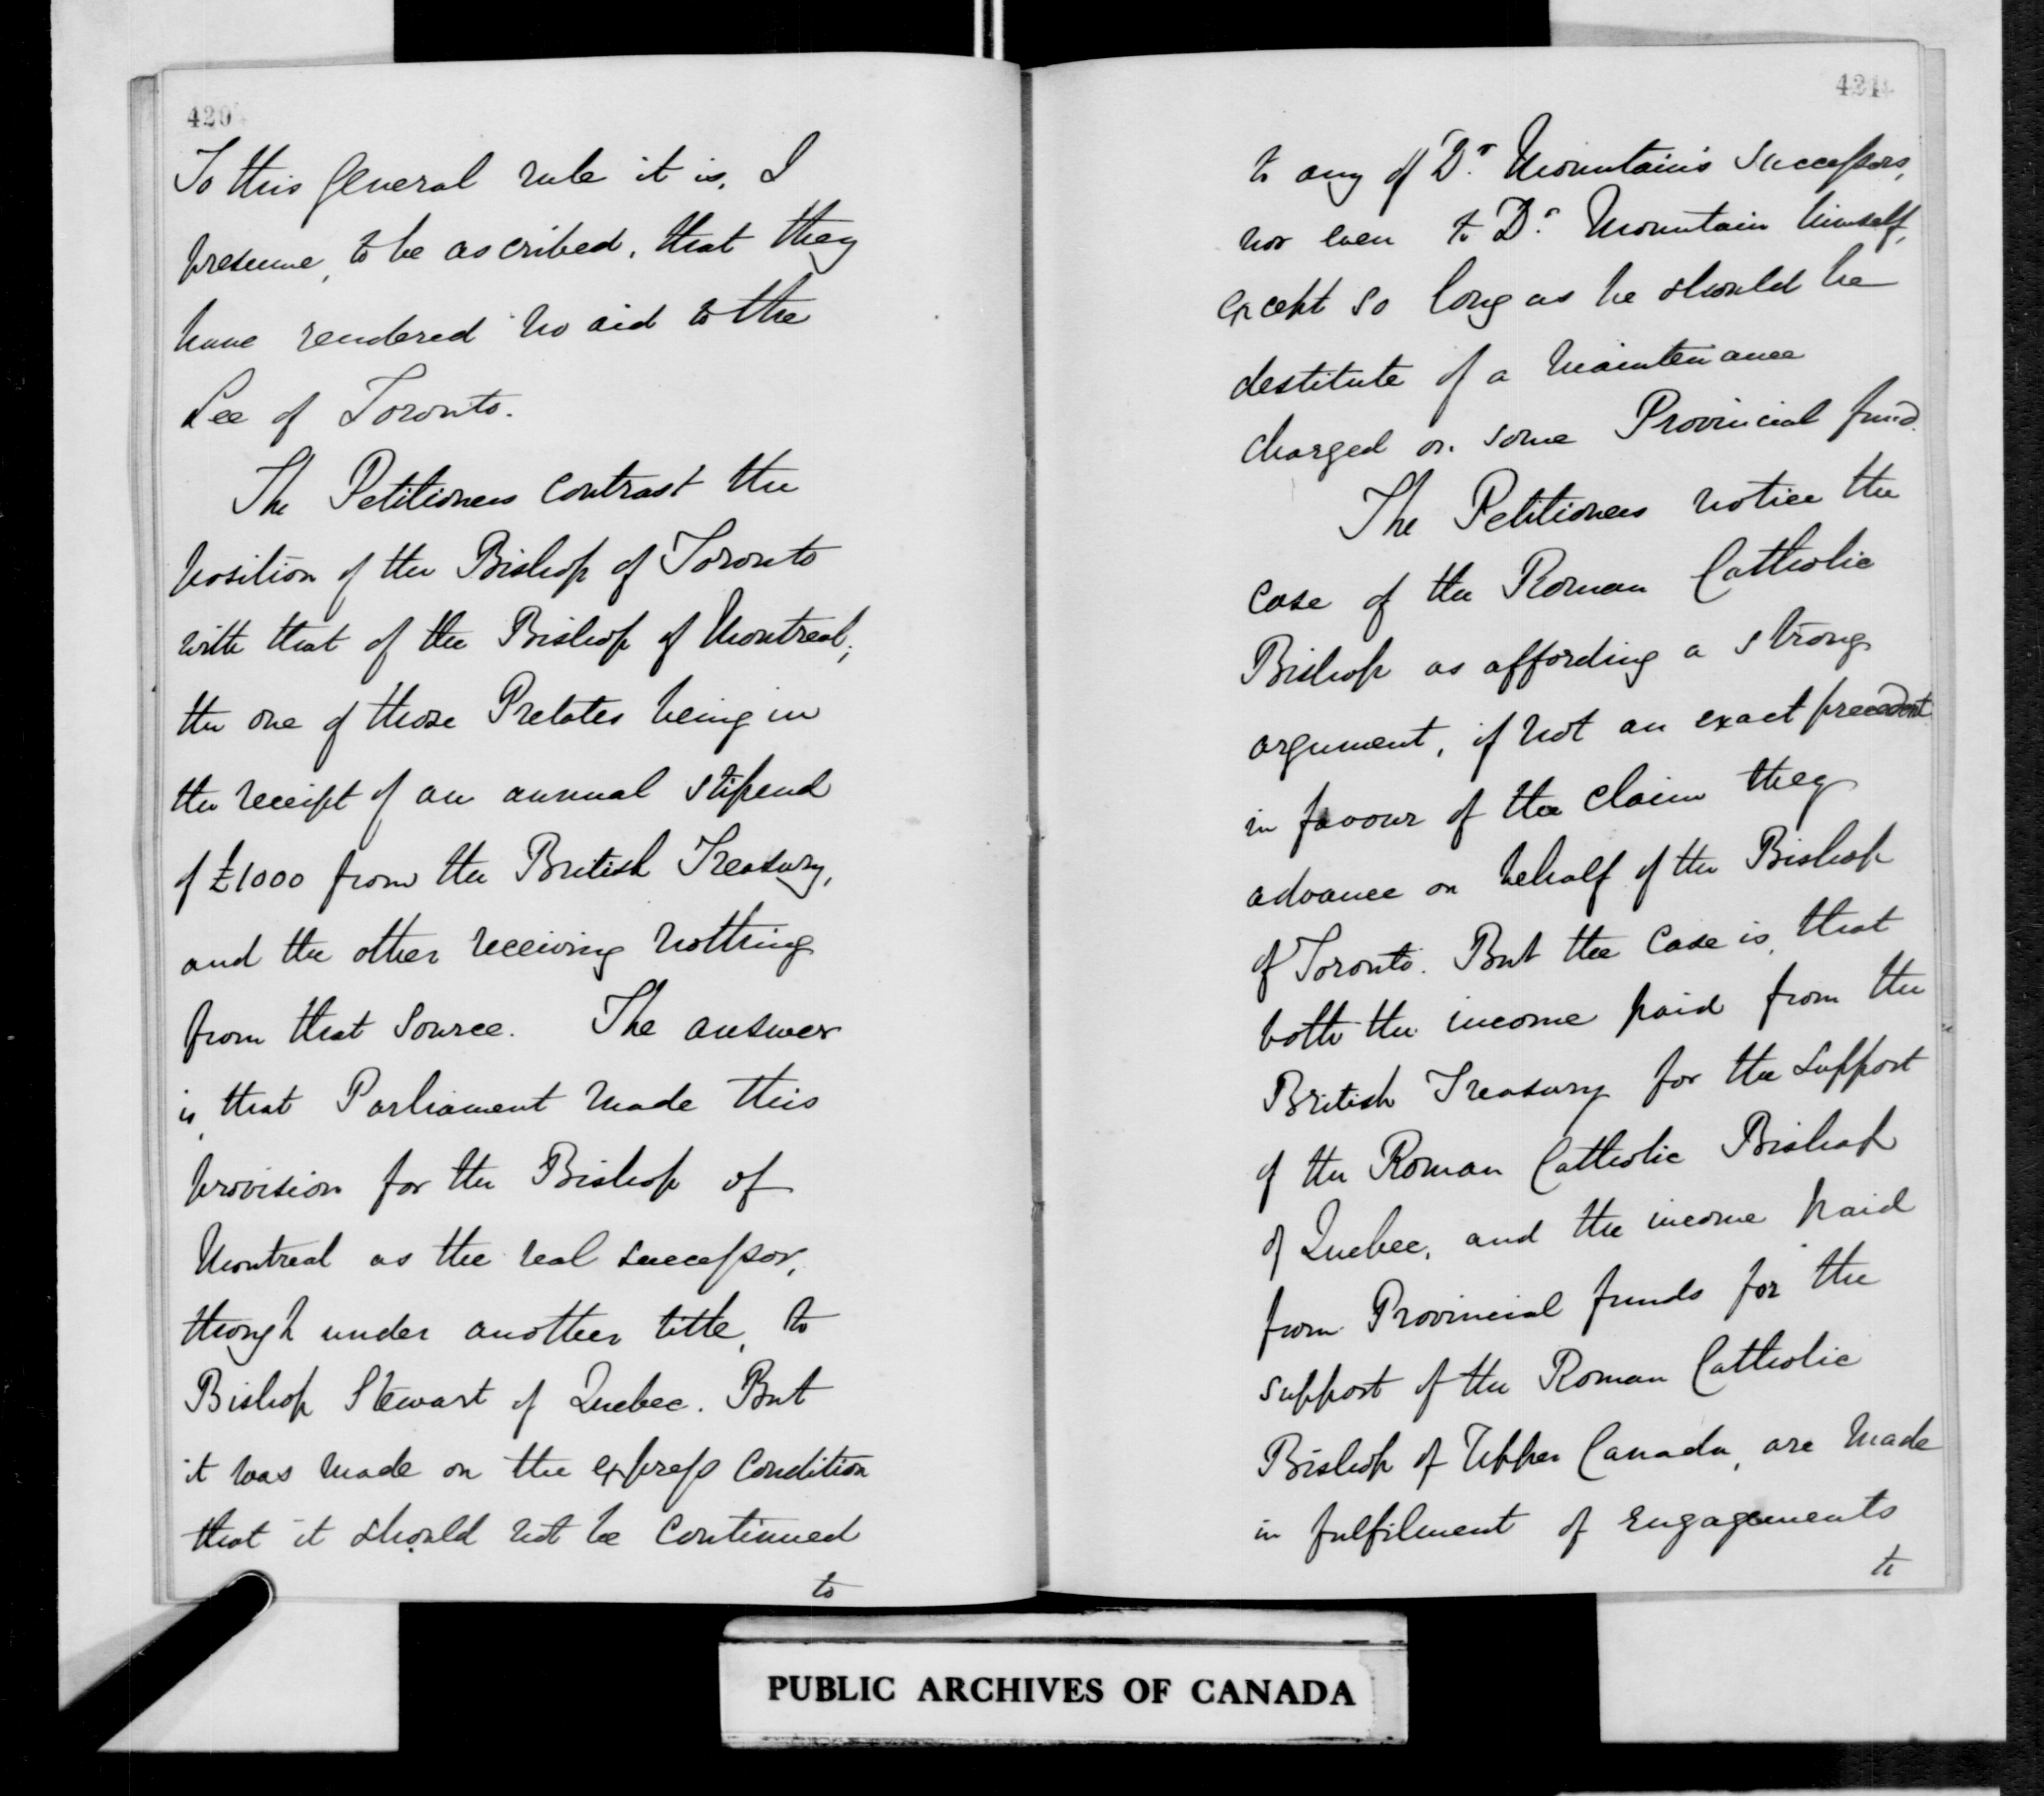 420
To this general rule it is, I
presume, to be ascribed, that they
have rendered no aid to the
See of Toronto.
The Petitioners contrast the
position of the Bishop of Toronto
with that of the Bishop of Montreal;
the one of those Prelates being in
the receipt of an annual stipend
of £1000 from the British Treasury,
and the other receiving nothing
from that source. The answer
is, that Parliament made this
provision for the Bishop of
Montreal as the real successor,
though under another title, to
Bishop Stewart of Quebec. But
it was made on the express condition
that it should not be continued
to
421
to any of Dr. Mountain's successors,
nor even to Dr. Mountain himself,
except so long as he should be
destitute of a maintenance
charged on some Provincial fund.
The Petitioners notice the
case of the Roman Catholic
Bishop as affording a strong
argument, if not an exact precedent
in favour of the claim they
advance on behalf of the Bishop
of Toronto. But the case is, that
both the income paid from the
British Treasury for the support
of the Roman Catholic Bishop
of Quebec, and the income paid
from Provincial funds for the
support of the Roman Catholic
Bishop of Upper Canada, are made
in fulfilment of engagements
to
PUBLIC ARCHIVES OF CANADA